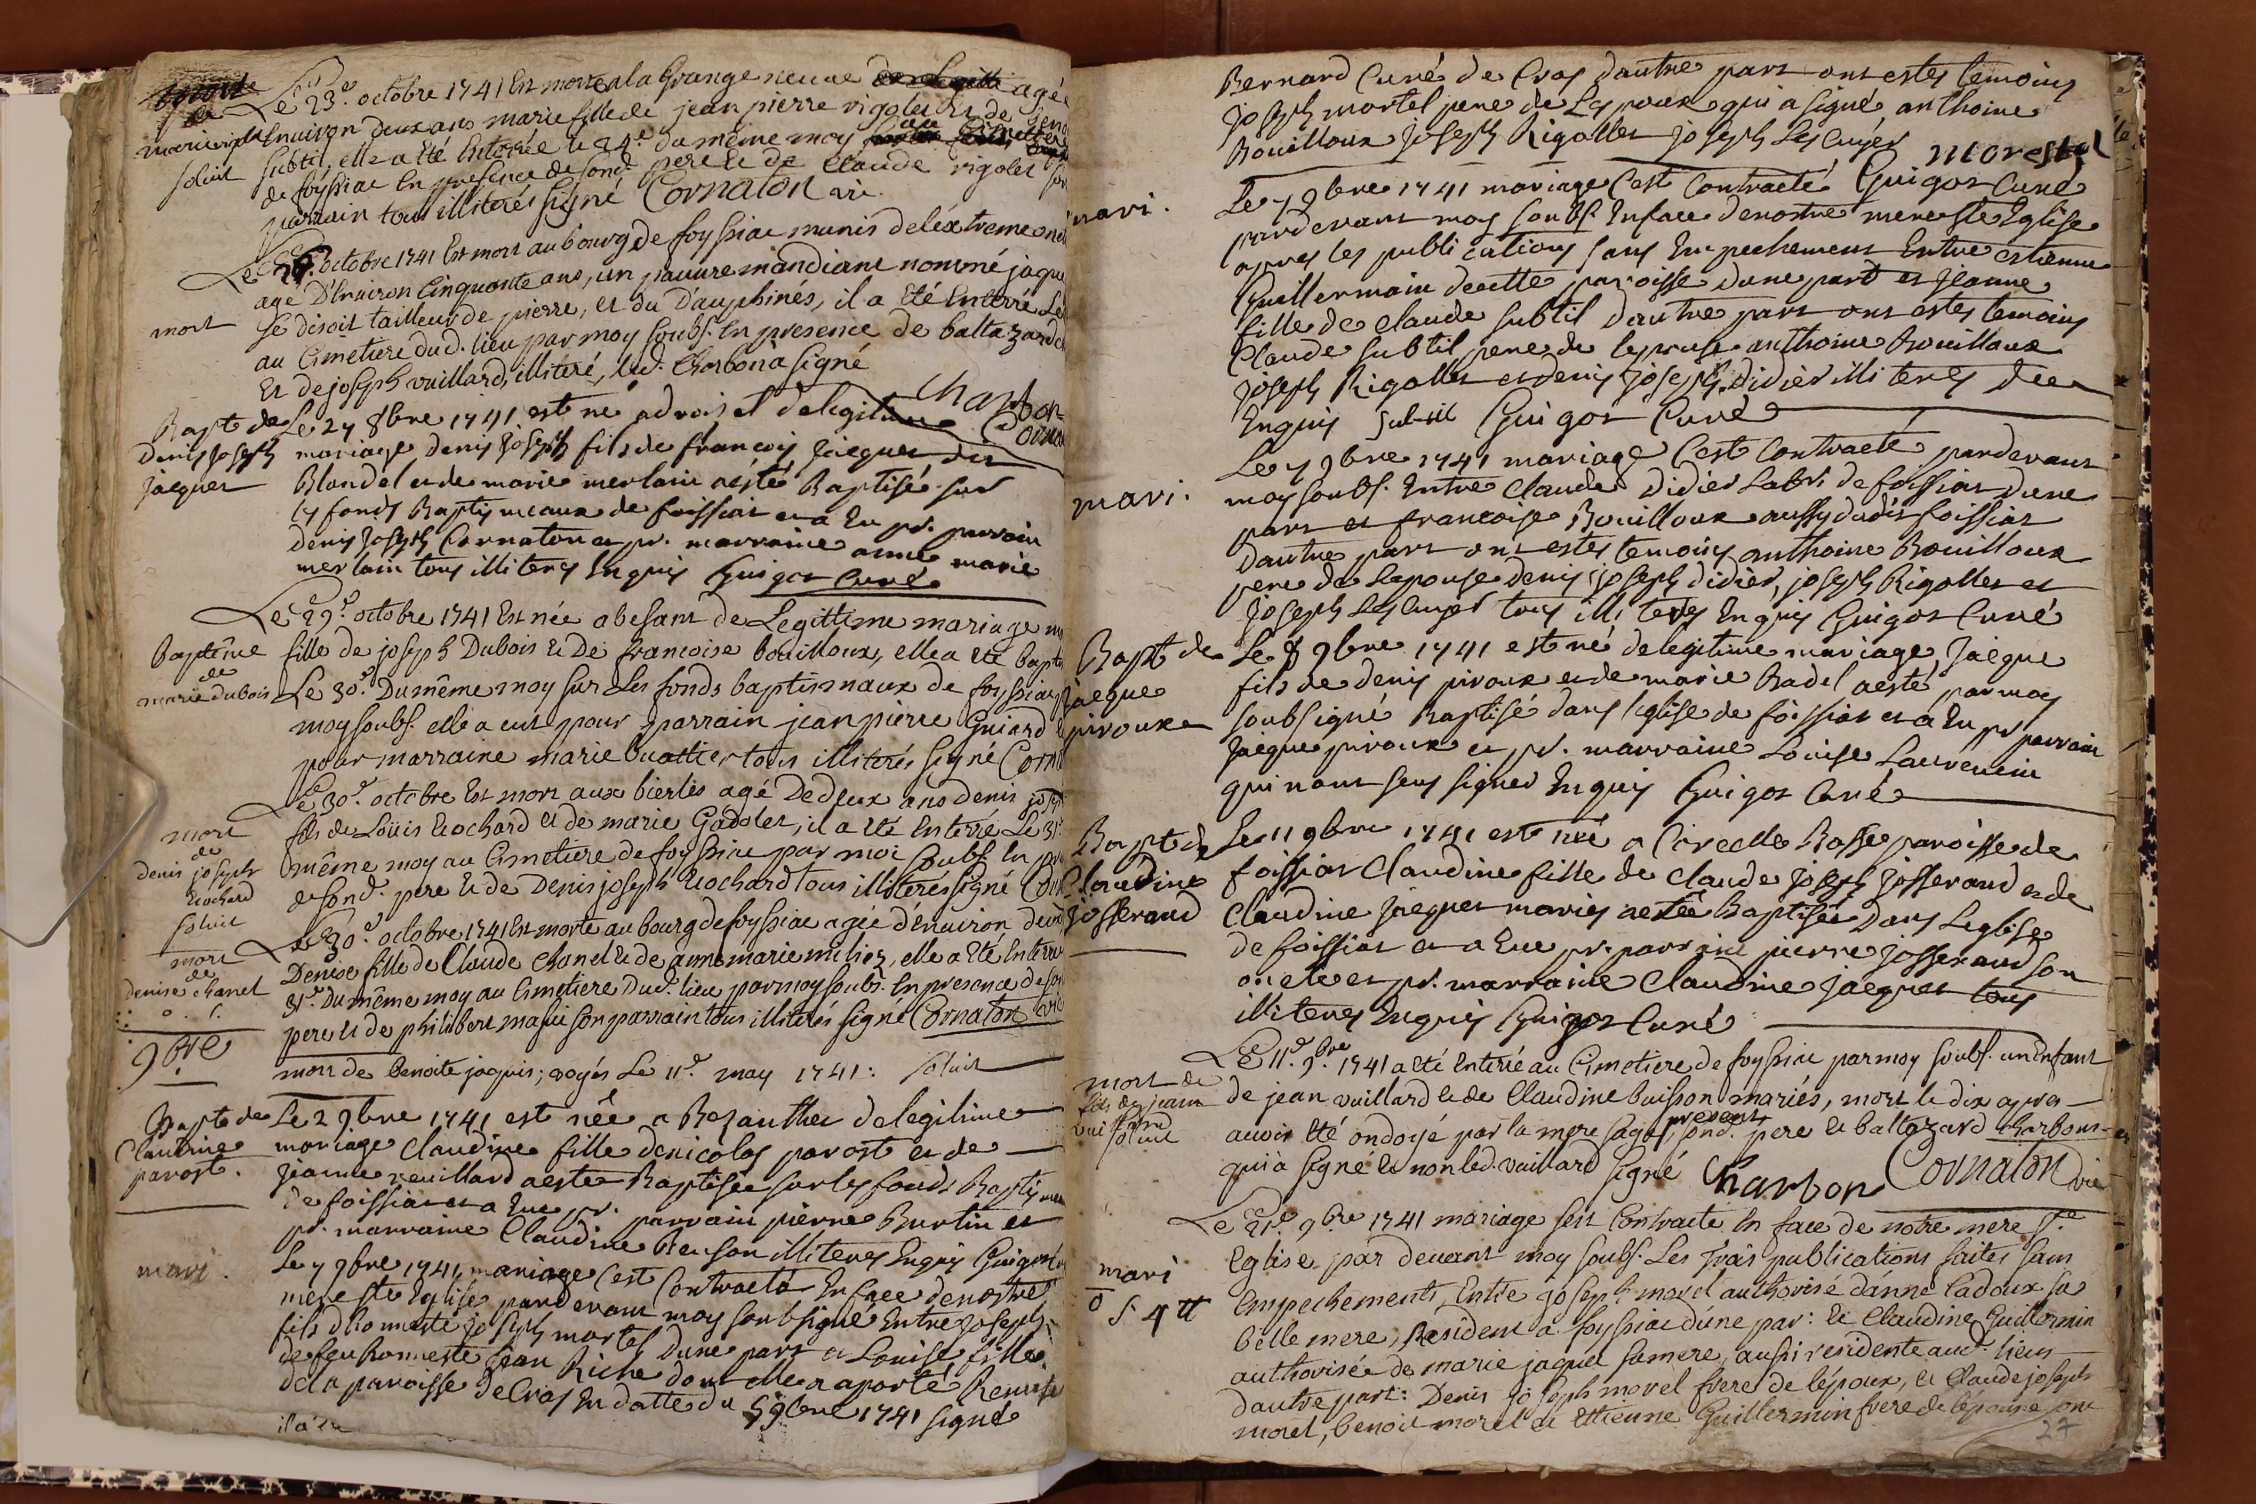 Le 23e. octobre 1741 Est morte a la Grange neuve agée
marie rigolet
soluit
d'Environ deux ans marie fille de jean pierre rigolet Et de
subtil, elle a été Enterrée le 24e. du même moy
de foÿssiac En presence de sond. pere Et de Claude rigolet son
parrain tous illiterés signé Cornaton vic
Le octobre 1741 Est mort au bourg de foyssiac munis de léxtreme
agé D'Environ Cinquante ans, un pauvre mandiant nommé jaque
mort
se disoit tailleur de pierre, et du D'auphinés, il a été Enterré Le
au Cimetiere dud. lieu par moy soubs. En presence de baltazard
Et de joseph vuillard, illiteré, led. Charbon a signé
Charbon
Bapt de
denis joseph
jacquet
Le 27 8bre 1741 est né a droiset de legitime
mariage denis joseph fils de francois jacquet dit
Blondel et de marie merlain a esté Baptisé sur
ls fonds Baptismeaux de foissiat et a Eu pr. parrain
denis joseph Cornaton et pr. marraine anne marie
merlain tous illiterés Enquis Guigot Curé
Le 29e. octobre 1741 Est née a besant de Legittime mariage
Baptême
de
marie Dubois
fille de joseph Dubois Et De francoise bouilloux, elle a été
Le 30e. Du même moy sur Les fonds baptismaux de foyssiac
moy soubs. elle a eut pour parrain jean pierre Guiard
pour marraine marie buattier tous illiterés signé
Le 30e. octobre Est mort aux bierles agé De deux ans denis
mort
de
denis joseph
Rochard
soluit
fils de Loüis Rochard Et de marie Gadolet, il a été Enterré Le 31e.
même moy au Cimetiere de foyssiac par moi soubs. En
de sond. pere Et de Denis joseph Rochard tous illiterés signé
Le 30e. octobre 1741 Est morte au bourg de foyssiac agée d'environ
mort
de
denise chanel
Denise fille de Claude chanel Et de anne marie milioz, elle a été Enterrée
31e. Du même moy au Cimetiere Dud. lieu par moy soubs. En presence de son
pere Et de philibert son parrain tous illiterés signé Cornaton vic
9bre
mort de benoite jaquis; voyés Le 11e. may 1741: soluit
Bapt de
Claudine
parost.
Le 2 9bre 1741 est née a Bezanthet de legitime
mariage Claudine fille de nicolas parost et de
jeanne reuillard a esté Baptisée sur ls fonds
de foissiat et a Eue pr. parrain pierre Burtin et
pr. marraine Claudine illiterés Enquis Guigot
mari.
Le 7 9bre 1741 mariage c'est Contracté En face de nostre
mere ste Eglise pardevant moy soubsigné Entre joseph
fils d'honneste joseph mortel d'une part et Louise fille
de feu honneste jean Riche dont elle a aporté Remise
de la paroisse de Cras En datte du 5 9bre 1741 signé
Bernard Curé de Cras d'autre part ont estes temoins
joseph mortel pere de Lepoux qui a signé anthoine
Bouilloux joseph Rigollet joseph Lescuyer
Guigot Curé
mari.
Le 7 9bre 1741 mariage c'est Contracté
pardevant moy soubs. En face de nostre mere ste Eglise
apres les publications sans Empechement Entre estienne
Guillermain de cette paroisse d'une part et jeanne
fille de claude subtil d'autre part ont estes temoins
Claude subtil pere de lepouse anthoine Bouilloux
joseph Rigollet et denis joseph didier illiterés de ce
Enquis Guigot Curé
mari.
Le 7 9bre 1741 mariage c'est Contracté pardevant
moy soubs. Entre Claude didier Labr. de foissiat d'une
part et francoise Bouilloux aussy dudit foissiat
d'autre part ont estes temoins anthoine Bouilloux
pere de Lepouse denis joseph didier, joseph Rigollet et
joseph Lescuyer tous illiterés Enquis Guigot Curé
Bapt de
jacque
piroux
Le 8 9bre 1741 est né de legitime mariage jacque
fils de denis piroux et de marie Badel a esté par moy
soubsigné Baptisé dans leglise de foissiat et a Eu pr parrain
jacque piroux et pr. marraine Louise
qui n'ont seus signer Enquis Guigot Curé
Bapt de
Claudine
josserand
Le 11 9bre 1741 est née a Circelle Basse paroisse de
foissiat Claudine fille de Claude joseph josserand et de
Claudine jacquet mariés a estée Baptisée dans Leglise
de foissiat et a Eue pr. parrain pierre josserand son
oncle et pr. marraine Claudine jacquet tous
illiterés Enquis Guigot Curé
Le 11e. 9bre. 1741 a été Enterré au Cimetiere de foyssiac par moy soubs. un Enfant
mort de
fils de jean
vuillard
soluit
de jean vuillard Et de Claudine buisson mariés, mort le dix apres
avoir été ondoyé par la mere sage, present sond. pere Et baltazard Charbon
qui a signé Et non led. vuillard signé Charbon Cornaton vic
Le 21e. 9bre 1741 mariage s'est Contracté En face de notre mere ste
mari
0
s 4 tt
Eglise par devant moy soubs. Les trois publications faites sans
Empechements, Entre joseph morel authorisé d'anne Cadoux sa
belle mere, Resident a foyssiac d'une par: Et Claudine Guillermin
authorisée de marie jaquet sa mere, aussi residente aud. lieu
d'autre part: Denis joseph morel frere de l'époux, Et Claude joseph
morel, benoit morel Et Ettienne Guillermin frere de l'épouse ont
27